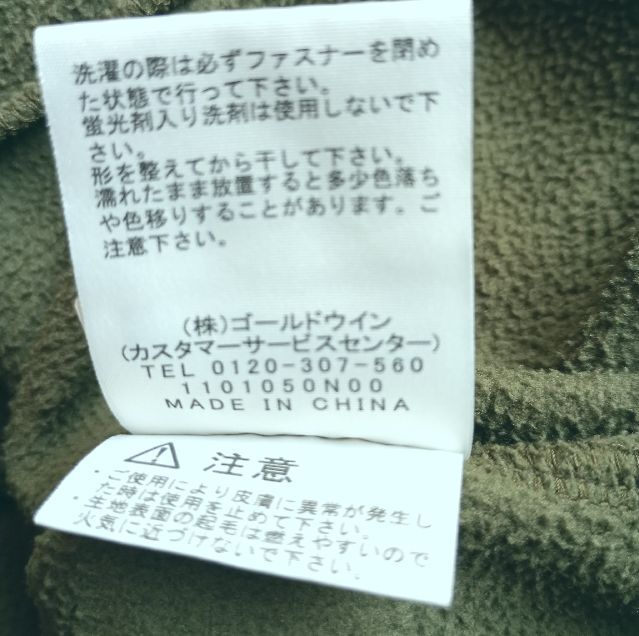 洗濯の際は必ずファスナーを閉め
た状態で行って下さい。
蛍光剤入り洗剤は使用しないで下
さい。
形を整えてから干して下さい。
濡れたまま放置すると多少色落ち
や色移りすることがあります。ご
注意下さい。
(株)ゴールドウイン
(カスタマーサービスセンター)
TEL 0120-307-560
1101050N00
MADE IN CHINA
注意
・ご使用により皮膚に異常が発生し
た時は使用を止めて下さい。
・生地表面の起毛は燃えやすいので
火気に近づけないで下さい。